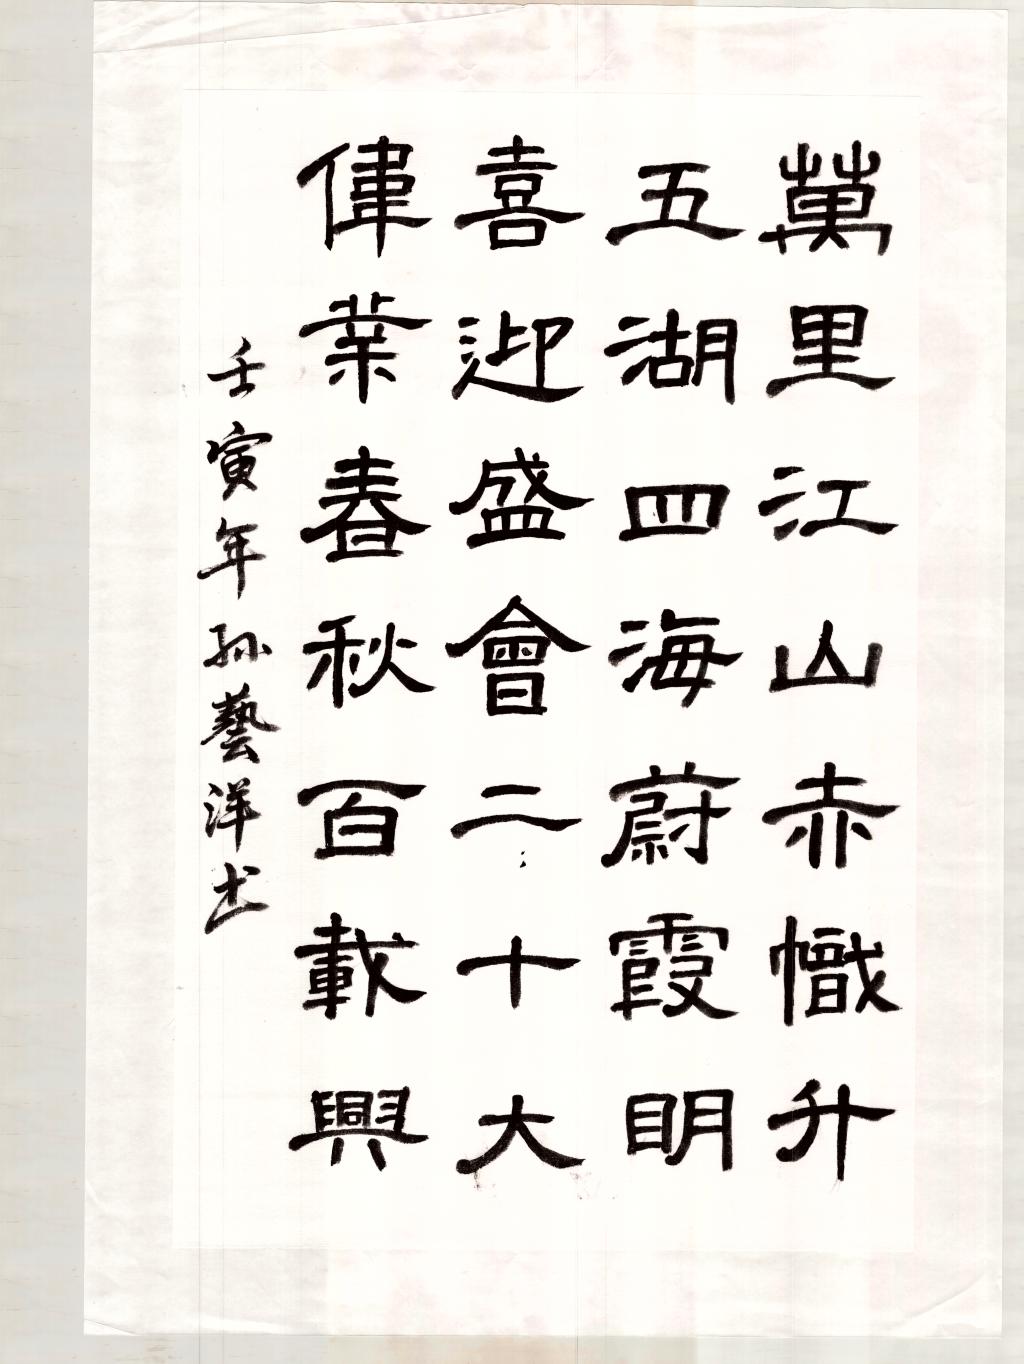 萬里江山赤幟升
五湖四海蔚霞明
喜迎盛會二十大
偉業春秋百載興
壬寅年孫藝洋书